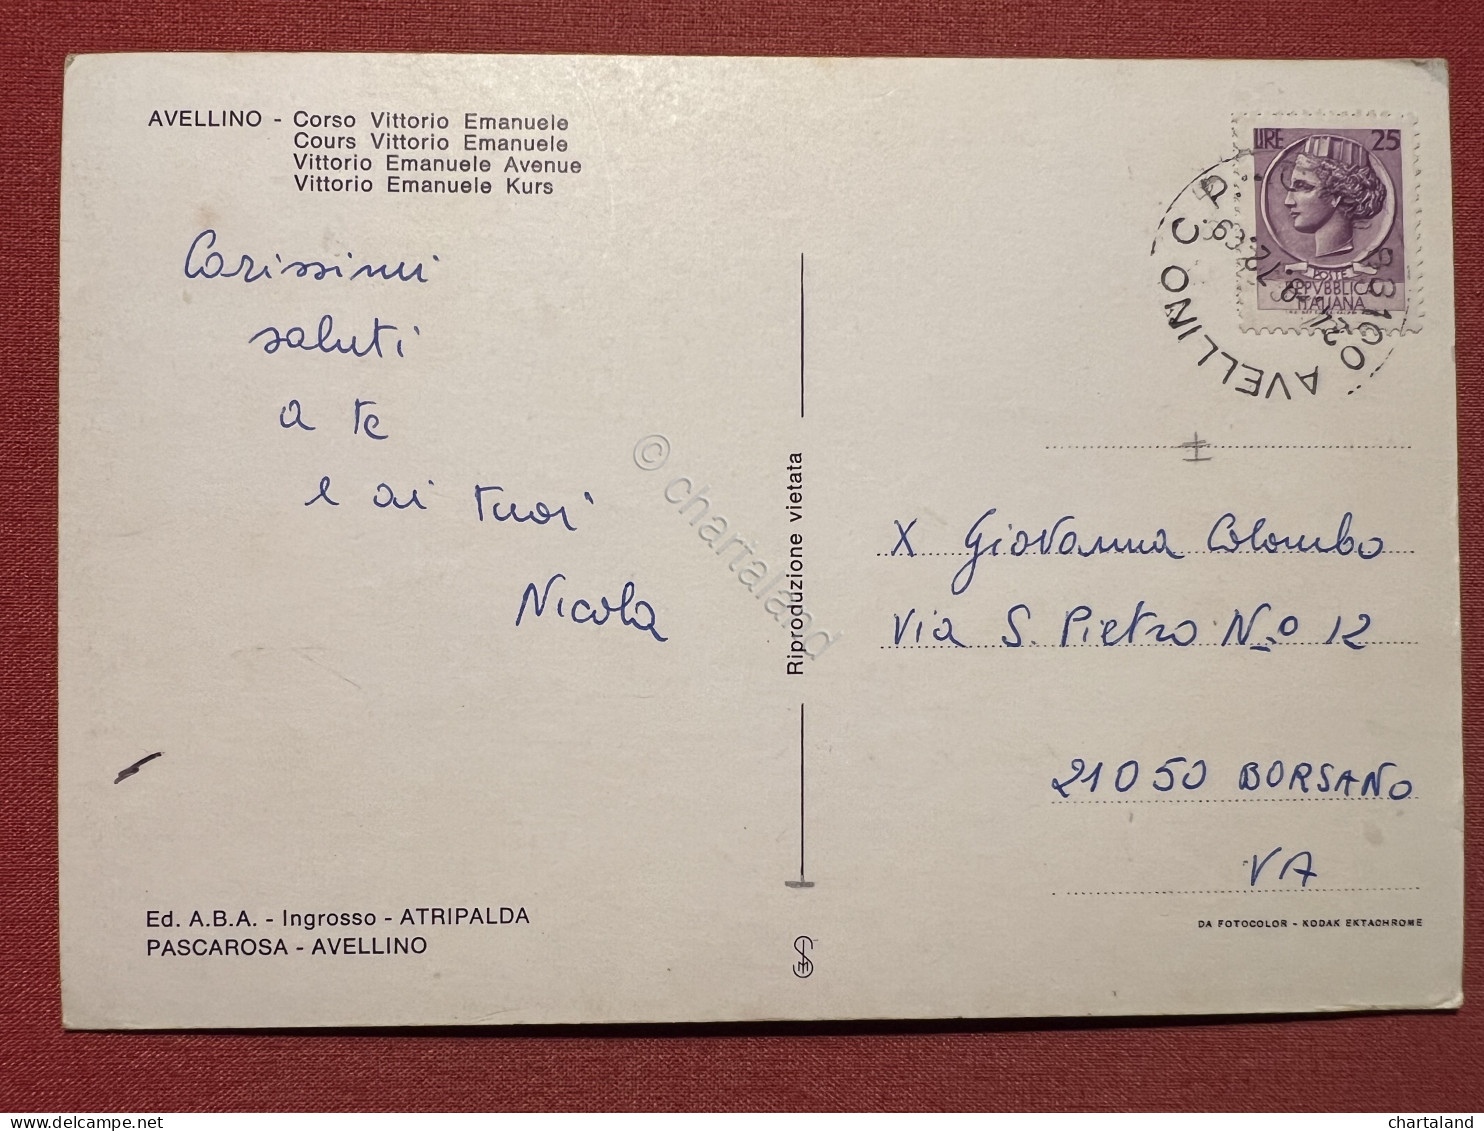 AVELLINO - Corso Vittorio Emanuele
Cours Vittorio Emanuele
Vittorio Emanuele Avenue
Vittorio Emanuele Kurs
Carissimi
saluti
a te
e ai tuoi
Nicola
Ed. A.B.A. - Ingrosso - ATRIPALDA
PASCAROSA - AVELLINO
Riproduzione vietata
© chartaland
LIRE 25
POSTE
REPVBBLICA
ITALIANA
AVELLINO C
X Giovanna Colombo
Via S. Pietro N.o 12
21050 BORSANO
VA
DA FOTOCOLOR - KODAK EKTACHROME
delcampe.net
chartaland